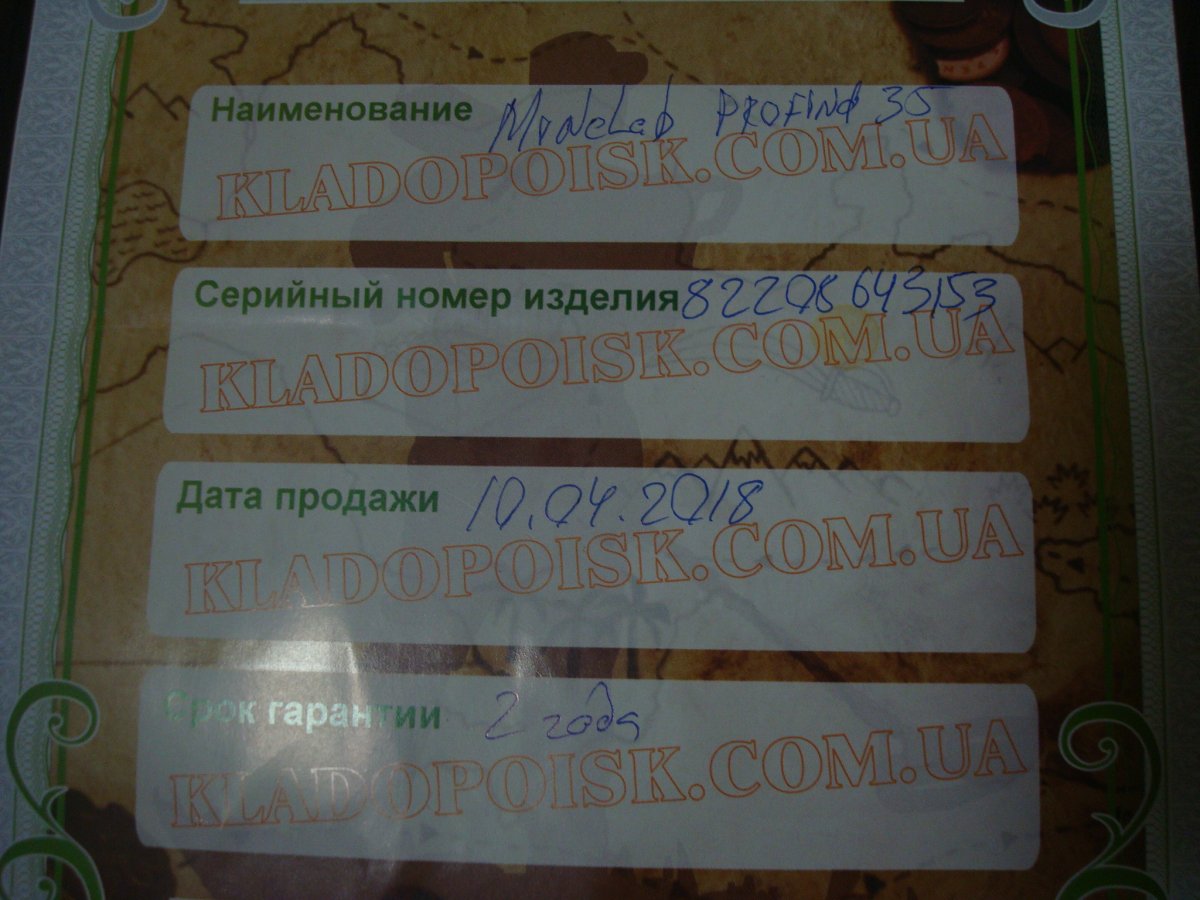 Наименование MineLab PROFIND 35
KLADOPOISK.COM.UA
Серийный номер изделия 82208643153
KLADOPOISK.COM.UA
Дата продажи 10.04.2018
KLADOPOISK.COM.UA
Срок гарантии 2 года
KLADOPOISK.COM.UA